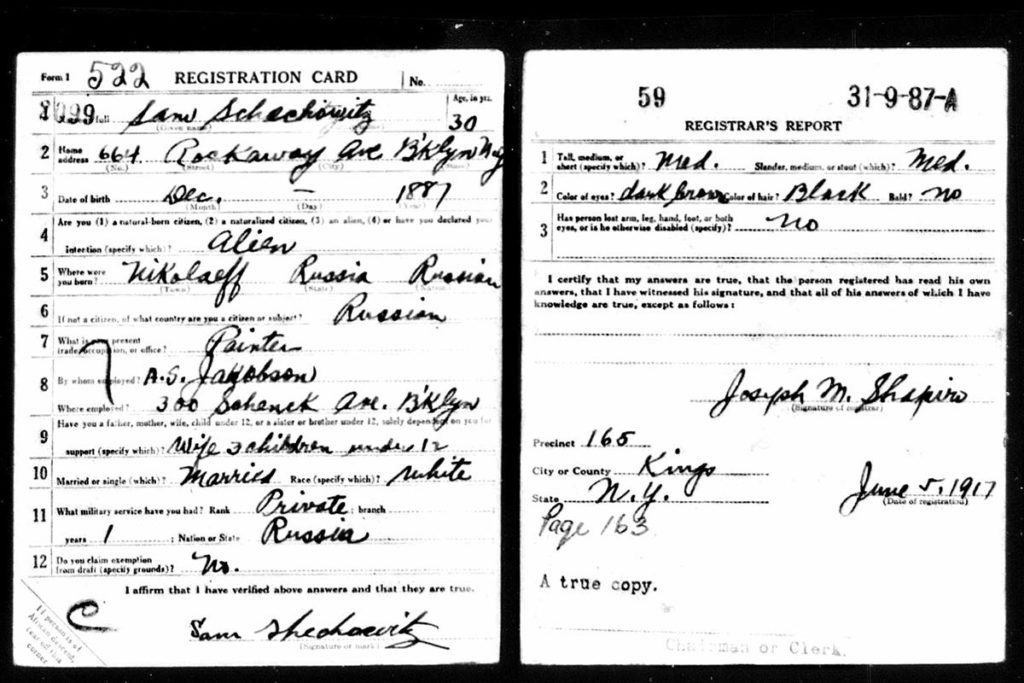 Form 1 522 REGISTRATION CARD No.
1 Sam Schachowitz Age, in yrs.
(Given name) 30
2 Home address 664 Rockaway Ave B'klyn N.Y
(No.) (Street) (City) (State)
3 Date of birth Dec. — 1887
(Month) (Day) (Year)
Are you (1) a natural-born citizen, (2) a naturalized citizen, (3) an alien, (4) or have you declared your
4 intention (specify which)? Alien
5 Where were you born? Nikolaeff Russia Russian
(Town) (State) (Nation)
6 If not a citizen, of what country are you a citizen or subject? Russian
7 What is your present trade, occupation, or office? Painter
8 By whom employed? A.S. Jakobson
Where employed? 300 Schenck Ave. B'klyn
Have you a father, mother, wife, child under 12, or a sister or brother under 12, solely dependent on you for
9 support (specify which)? Wife 3 children under 12
10 Married or single (which)? Married Race (specify which)? White
11 What military service have you had? Rank Private ; branch
years 1 ; Nation or State Russia
12 Do you claim exemption from draft (specify grounds)? No.
I affirm that I have verified above answers and that they are true.
C
Sam Shechowitz
(Signature or mark)
If person is of
African descent,
tear off this
corner.
59 31-9-87-A
REGISTRAR'S REPORT
1 Tall, medium, or short (specify which)? Med. Slender, medium, or stout (which)? Med.
2 Color of eyes? dark brown Color of hair? Black Bald? No
3 Has person lost arm, leg, hand, foot, or both eyes, or is he otherwise disabled (specify)? No
I certify that my answers are true, that the person registered has read his own
answers, that I have witnessed his signature, and that all of his answers of which I have
knowledge are true, except as follows:
Joseph M. Shapiro
(Signature of registrar)
Precinct 165
City or County Kings
State N.Y. June 5, 1917
(Date of registration)
Page 163
A true copy.
Chairman or Clerk.